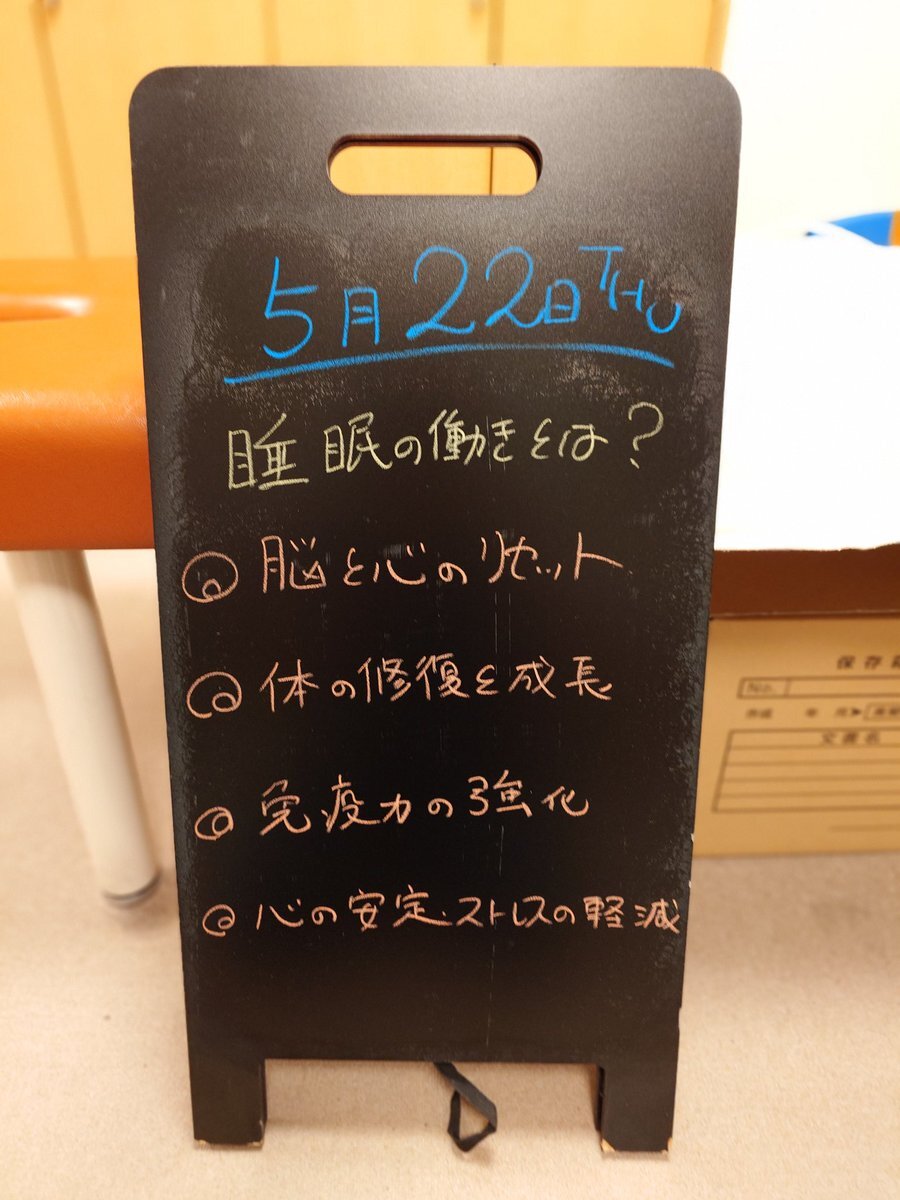 5月22日THU
睡眠の働きとは?
◎脳と心のリセット
◎体の修復と成長
◎免疫力の強化
◎心の安定・ストレスの軽減
保存
No.
文書名